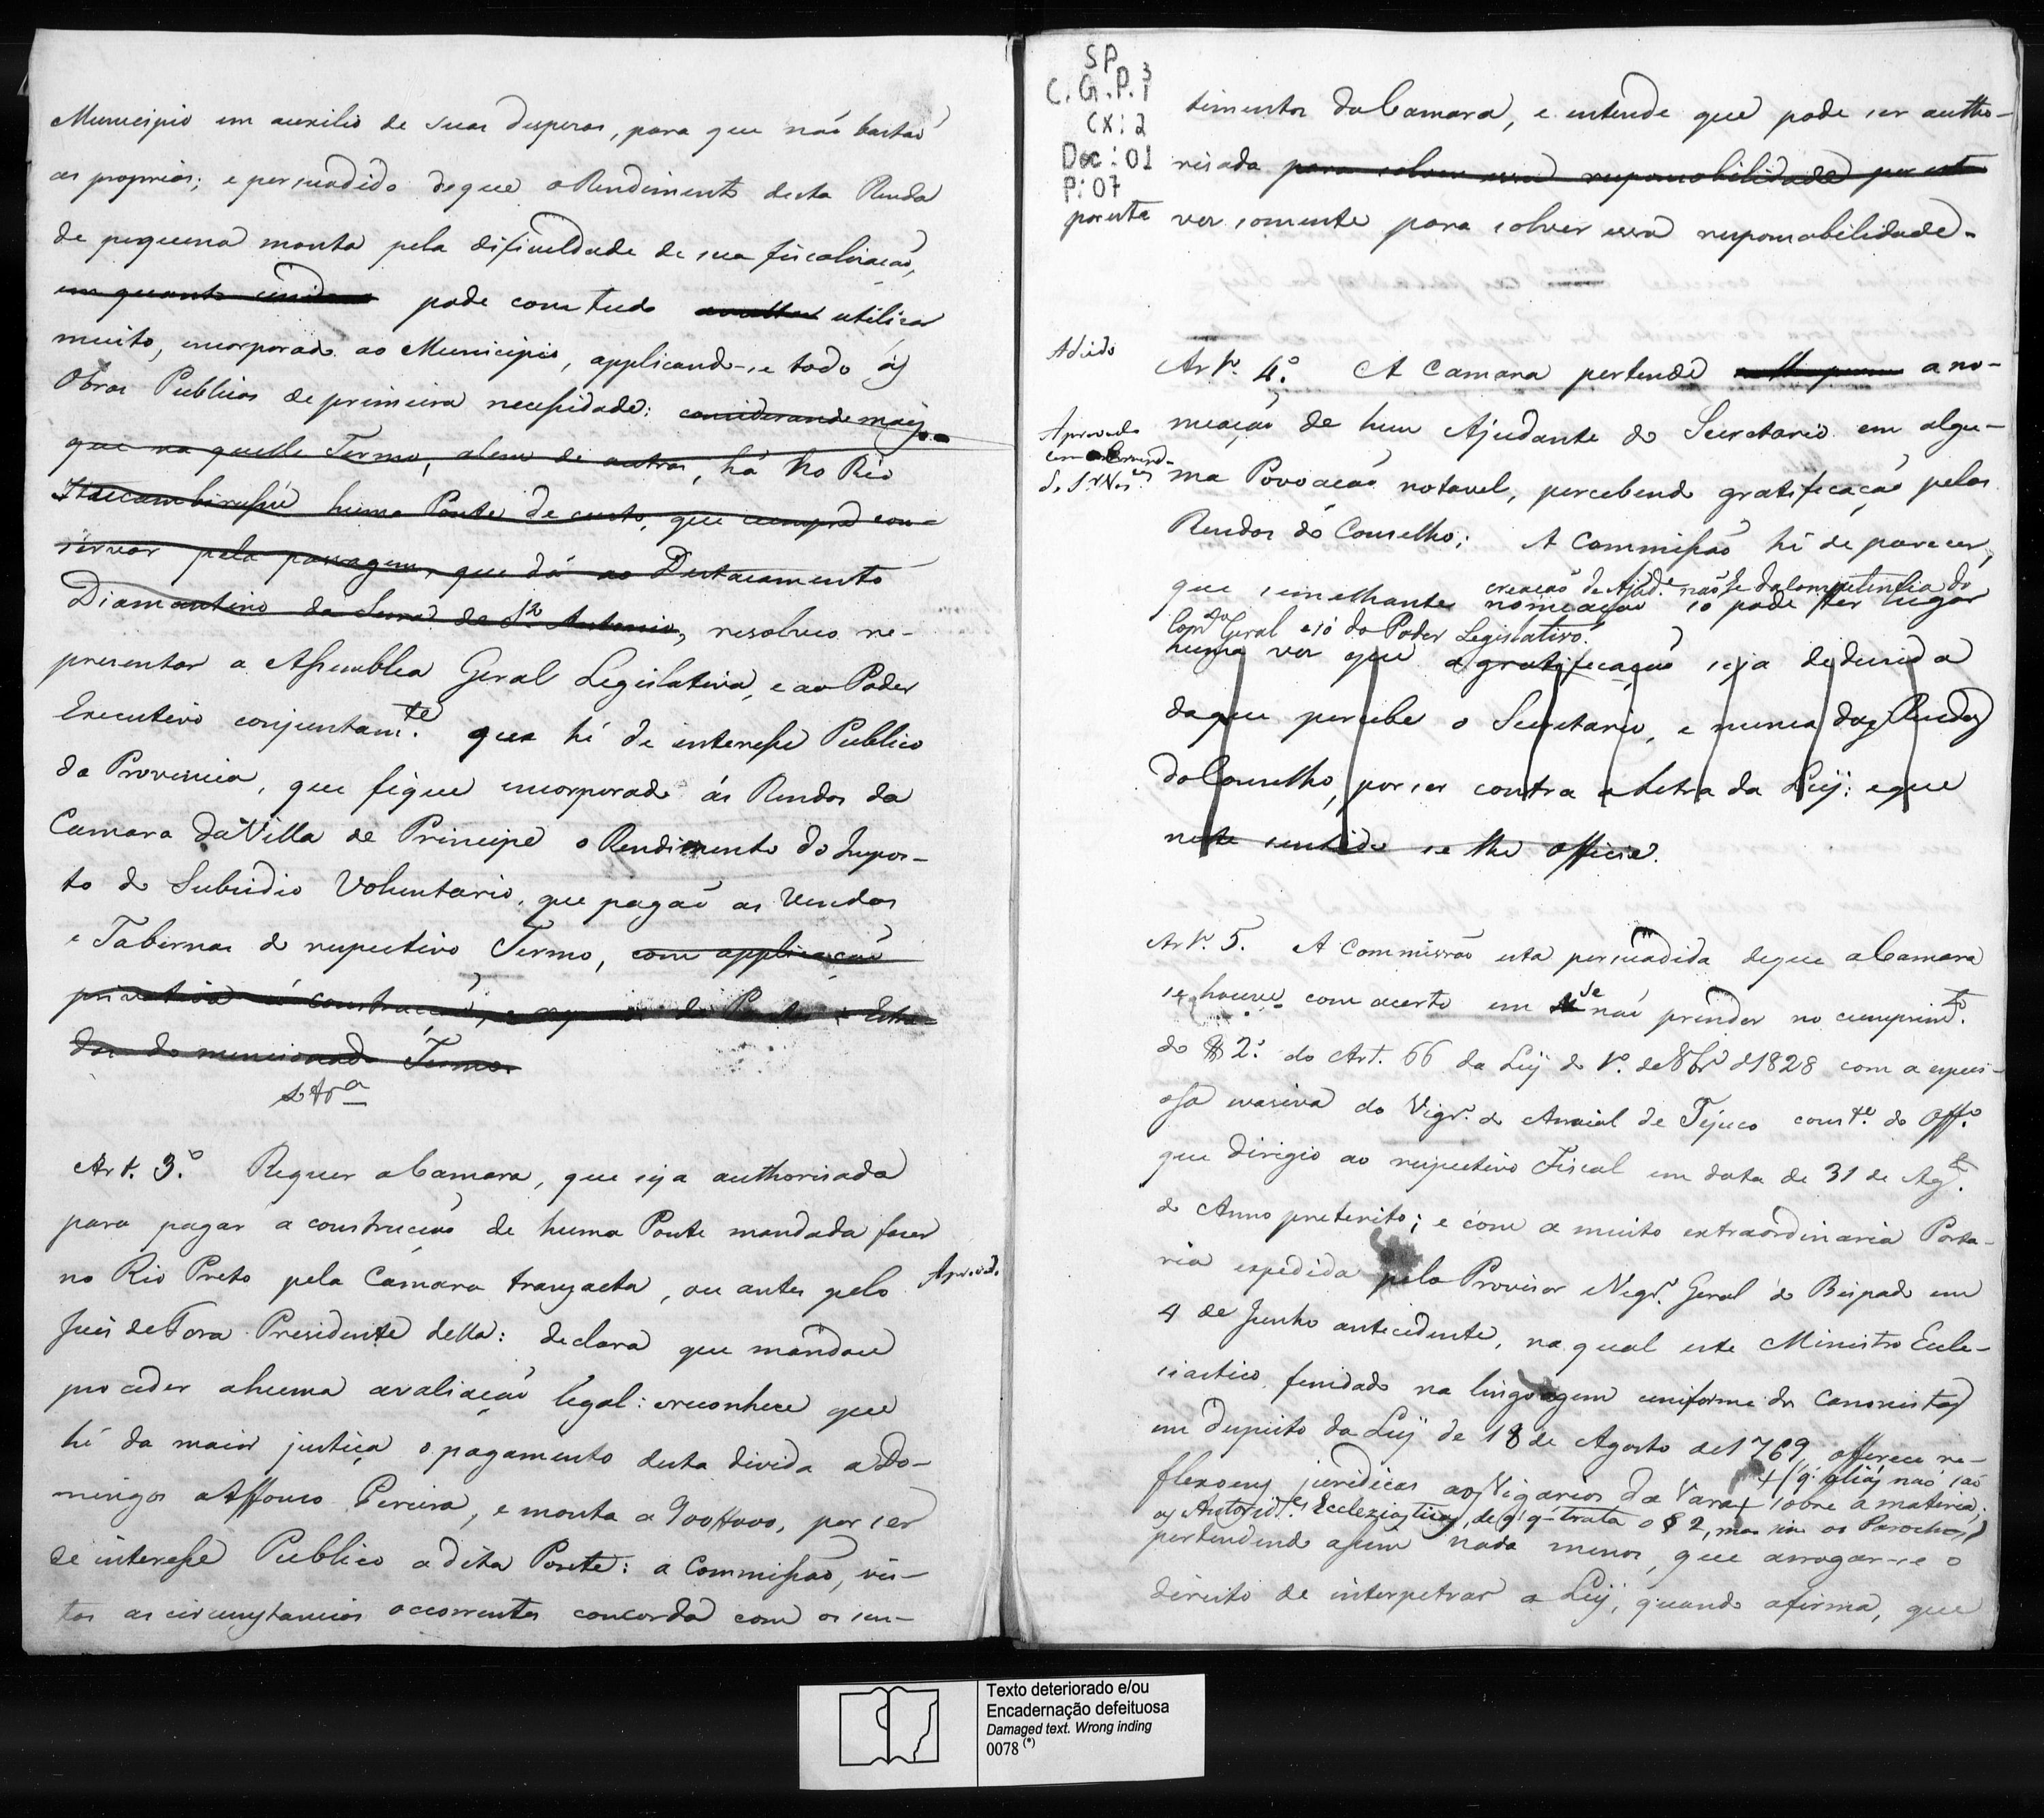 Municipio em auxilio de suas despezas, para que não bastaõ
as proprias; e persuadido deque o Rendimento desta Renda
de pequena monta pela dificuldade de sua fiscalisação,
em quanto unida pode com tudo avultar utilisar
muito, encorporado ao Municipio, applicando-se todo ás
Obras Publicas de primeira necessidade: considerando mais
que na quelle Termo, alem de outras, há no Rio
Itacambirussú huma Ponte de custo, que cumpre con-
servar pela passagem, que dá ao Destacamento
Diamantino da Serra de Sto. Antonio, resolveo re-
presentar a Assemblea Geral Legislativa, e ao Poder
Executivo conjuntamte. que hé de interesse Publico
da Provincia, que fique encorporado ás Rendas da
Camara da Villa do Principe o Rendimento do Impos-
to do Subsidio Voluntario, que pagaõ as Vendas
e Tabernas do respectivo Termo, com applicação
privativa á construcção, e reparo de Pontes e Estra-
das do mencionado Termo.
Art. 3.º Requer a Camara, que seja authorisada
para pagar a construcção de huma Ponte mandada fazer
no Rio Preto pela Camara tranzacta, ou antes pelo
Aprovado
Juis de Fora Presidente della: declara que mandou
proceder ahuma avaliação legal: e reconhece que
hé da maior justiça o pagamento desta divida a Do-
mingos Affonco Pereira, e monta a 900#000, por ser
de interesse Publico a dita Ponte: a Commissão, vis-
tas as circunstancias occorrentes concorda com os sen-
SP
C.G.P. 1
3
CX: 2
Doc: 01
P: 07
timentos da Camara, e entende que pode ser autho-
risada para solver essa responsabilidade por esta
por esta vez somente para solver essa responsabilidade.
Adiado
Art. 4.º A Camara pertende a no-
Aprovado
meação de hum Ajudante do Secretario em algu-
ma Povoação notavel, percebendo gratificação pelas
Rendas do Conselho; A Commissão hé de parecer,
creação de Ajude. não he da Competencia do
que semelhante nomeação só pode ter lugar
Cons.º Geral e só do Poder Legislativo.
huma vez que a gratificação seja deduzida
daque percebe o Secretario, e nunca das Rendas
do Conselho, por ser contra a Letra da Ley: e que
neste sentido se lhe officie.
Art. 5. A Commissão esta persuadida deque a Camara
se houve com acerto em se não prender no cumprimto.
do § 2.º do Art. 66 da Ley do 1.º de 8br.º d 1828 com a especi-
osa evasiva do Vigr.º do Arraial de Tejuco const.e do Off.º
que dirigio ao respectivo Fiscal em data de 31 de Ag.to
do Anno preterito; e com a muito extraordinaria Porta-
ria expedida pelo Provisor e Vigr.º Geral do Bispado em
4 de Junho antecedente, na qual este Ministro Eccle-
siastico, fundado na lingoagem uniforme dos Canonistas
em despeito da Ley de 18 de Agosto de 1769 offerece re-
flexoens juredicas aos Vigarios da Vara + sobre a materia;
+ (q' aliás não são
as Autorid.es Ecclesiasticas, de q' trata o § 2, mas sim os Parochos)
pertendendo assim nada menos, que arrogar-se o
direito de interpetrar a Ley, quando afirma, que
Texto deteriorado e/ou
Encadernação defeituosa
Damaged text. Wrong inding
0078 (*)